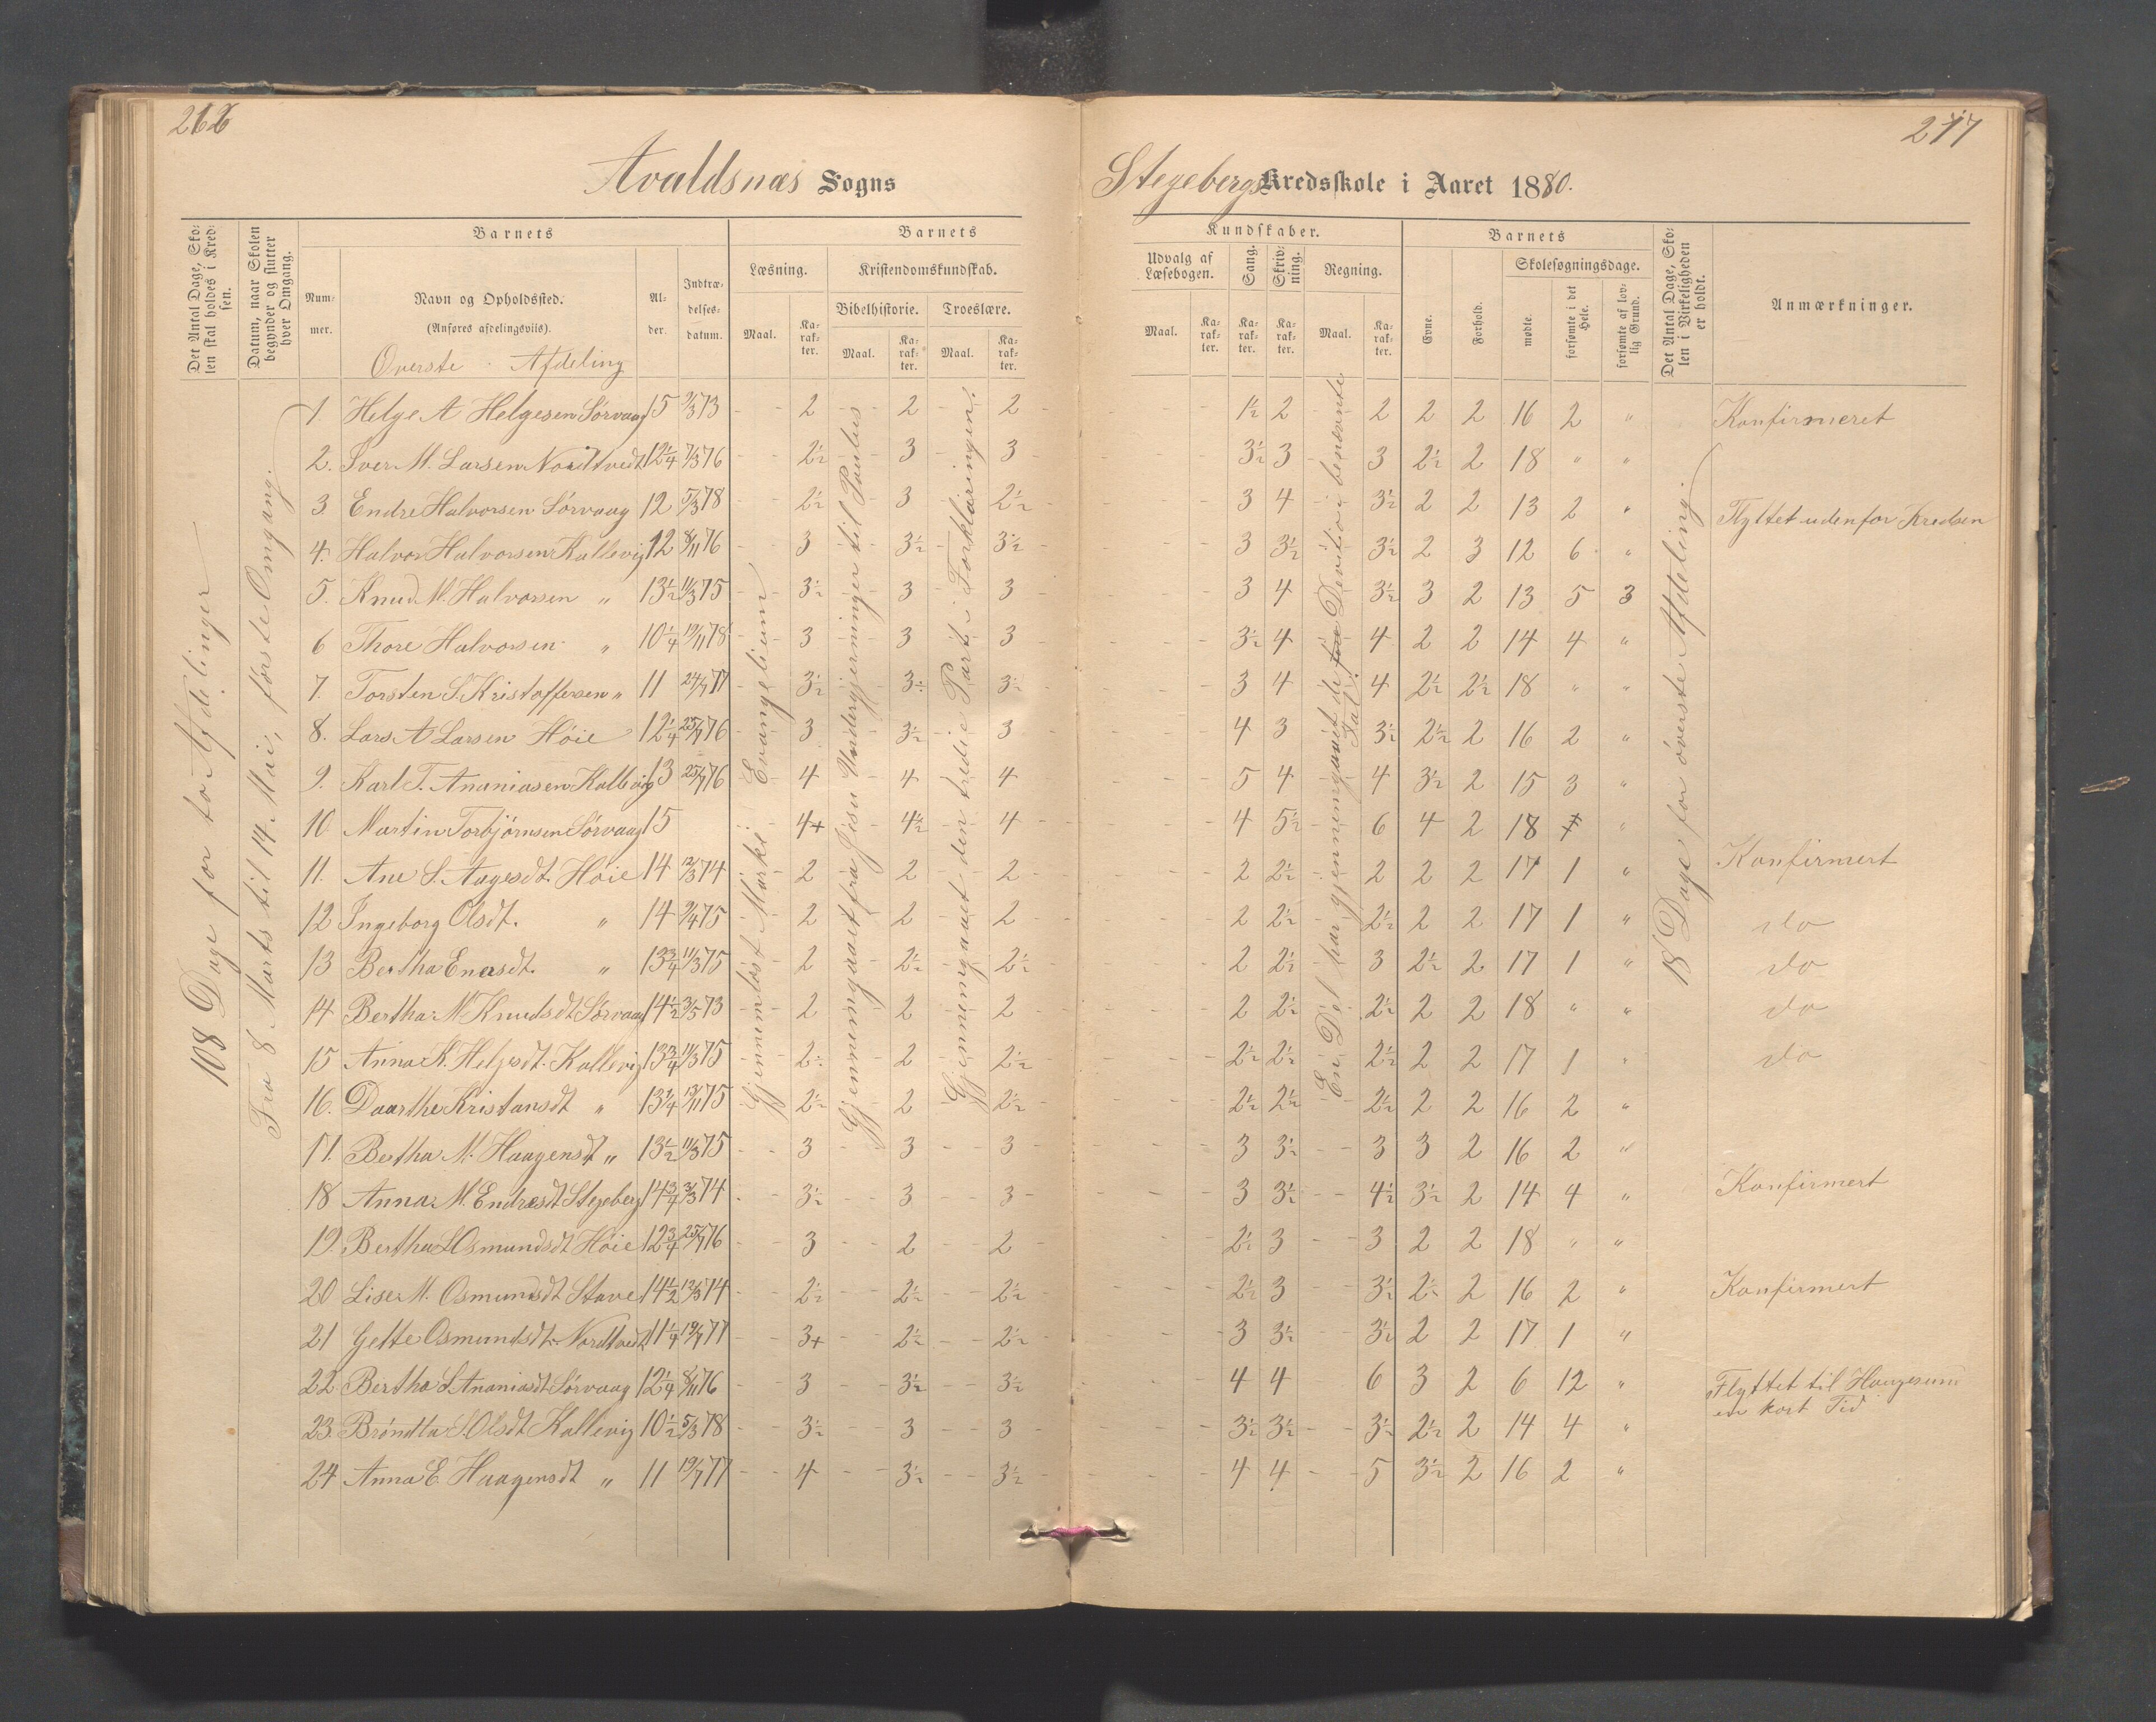 216
277
Avaldsnæs Sogns
Stegebergs Kredsskole i Aaret 1880.
Det Antal Dage, Skolen skal holdes i Kredsen.
Datum, naar Skolen begynder og slutter hver Omgang.
Barnets
Nummer.
Navn og Opholdssted.
(Anføres afdelingsvis).
Alder.
Indtrædelsesdatum.
Barnets Kundskaber.
Læsning.
Kristendomskundskab.
Bibelhistorie.
Troeslære.
Maal.
Karakter.
Maal.
Karakter.
Maal.
Karakter.
Udvalg af Læsebogen.
Maal.
Karakter.
Sang.
Karakter.
Skrivning.
Karakter.
Regning.
Maal.
Karakter.
Barnets
Evne.
Forhold.
Skolesøgningsdage.
mødte.
forsømte i det Hele.
forsømte af lovlig Grund.
Det Antal Dage, Skolen i Virkeligheden er holdt.
Anmærkninger.
Øverste Afdeling
108 Dage for to Afdelinger
Fra 8 Marts til 14. Mai, første Omgang.
Gjennemlæst Marki Evangelium
Gjennemgaaet fra Jesu Undergjerninger til Paulus
Gjennemgaaet den tredie Part i Forklaringen.
En Del har gjennemgaaet de fire Devitio i benævnte Tal.
18 Dage for øverste Afdeling
1 Helge A Helgesen Sørvaag 15 9/3 73 2 2 2 1½ 2 2 2 2 16 2 " Konfirmeret
2. Iver M. Larsen Nordtvedt 12¼ 7/3 76 2½ 3 3 3½ 3 3 2½ 2 18 " "
3. Endre Halvorsen Sørvaag 12 5/3 78 2½ 3 2½ 3 4 3½ 2 2 13 2 " Flyttet udenfor Kredsen
4. Halvor Halvorsen Kallevig 12 8/11 76 3 3½ 3½ 3 3½ 3½ 2 3 12 6 "
5. Knud M. Halvorsen " 13½ 11/3 75 3½ 3 3 3 4 3½ 3 2 13 5 3
6 Thore Halvorsen " 10¼ 19/11 78 3 3 3 3½ 4 4 2 2 14 4 "
7. Torsten S. Kristoffersen " 11 24/7 77 3½ 3½ 3½ 3 4 4 2½ 2½ 18 " "
8. Lars A Larsen Høie 12¼ 25/7 76 3 3½ 3 4 3 3½ 2½ 2 16 2 "
9. Karl T. Ananiasen Kallevig 13 25/7 76 4 4 4 5 4 4 3½ 2 15 3 "
10 Martin Torbjørnsen Sørvaag 15 4+ 4½ 4 4 5½ 6 4 2 18 "
11. Ane S. Aagesdt. Høie 14 12/3 74 2 2 2 2 2½ 2 2 2 17 1 " Konfirmert
12 Ingeborg Olsdt. " 14 9/4 75 2 2 2 2 2½ 2½ 2 2 17 1 " do
13 Bertha Enersdt. " 13¾ 11/3 75 2 2½ 2½ 2 2½ 3 2½ 2 17 1 " do
14 Bertha M Knudsdt Sørvaag 14½ 3/5 73 2 2 2 2 2½ 2½ 2 2 18 " " do
15 Anna K. Helgesdt. Kallevig 13¾ 11/3 75 2½ 2 2½ 2½ 2½ 2½ 2 2 17 1 " do
16. Daarthe Kristansdt " 13¼ 13/11 75 2½ 2 2½ 2½ 2½ 2½ 2 2 16 2 "
17. Bertha M. Haagensdt " 13½ 11/3 75 3 3 3 3 3½ 3 3 2 16 2 "
18 Anna M. Endresdt Stegeberg 14¾ 3/3 74 3½ 3 3 3 3½ 4½ 3½ 2 14 4 " Konfirmert
19. Bertha L Osmundsdt Høie 12¾ 25/7 76 3 2 2 2½ 3 3 2 2 18 " "
20 Lise M. Osmundsdt Stave 14½ 12/3 74 2½ 2½ 2½ 2½ 3 3½ 2½ 2 16 2 " Konfirmert
21 Gette Osmundsdt. Nordtvedt 11¼ 19/7 77 3+ 2½ 2½ 3 3½ 3½ 2 2 17 1 "
22 Bertha L Ananiasdt Sørvaag 12¼ 8/11 76 3 3½ 3½ 4 4 6 3 2 6 12 " Flyttet til Haugesund
en kort Tid
23. Brøndta S. Olsdt Kallevig 10½ 5/3 78 3½ 3 3 3½ 3½ 3½ 2½ 2 14 4 "
24 Anna E. Haagensdt " 11 19/7 77 4 3½ 3½ 4 4 5 3½ 2 16 2 "